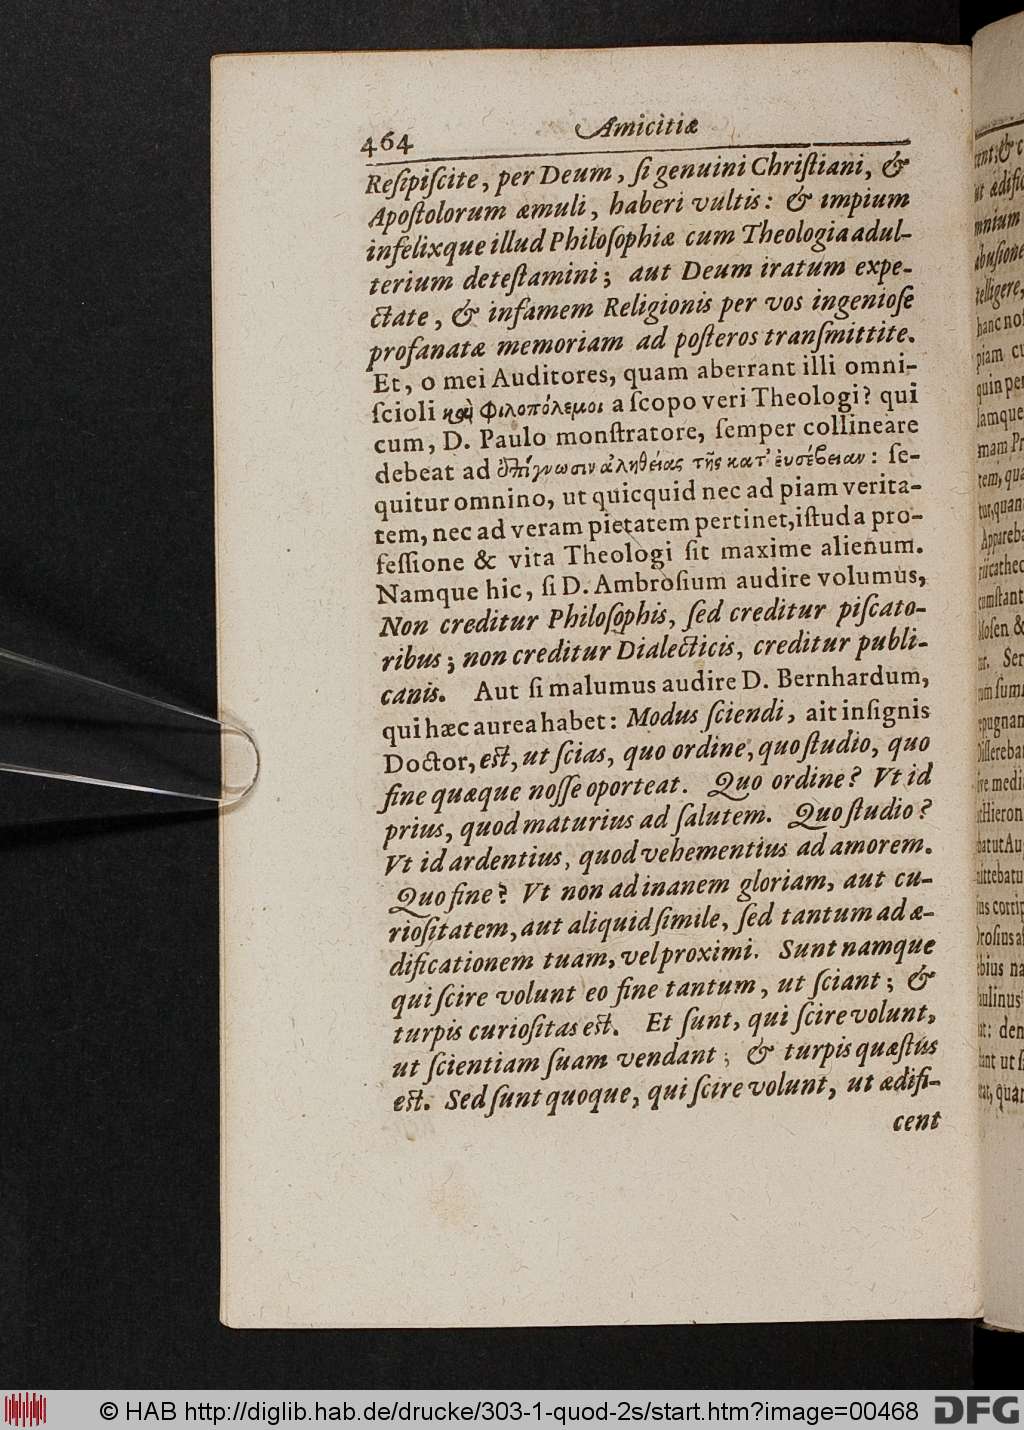 464 Amicitiæ
Reſipiſcite, per Deum, ſi genuini Chriſtiani, &
Apoſtolorum æmuli, haberi vultis: & impium
infelixque illud Philoſophiæ cum Theologia adul-
terium deteſtamini; aut Deum iratum expe-
ctate, & infamem Religionis per vos ingenioſe
profanatæ memoriam ad poſteros tranſmittite.
Et, o mei Auditores, quam aberrant illi omni-
ſcioli καὶ Φιλοπόλεμοι a ſcopo veri Theologi? qui
cum, D. Paulo monſtratore, ſemper collineare
debeat ad ἐπίγνωσιν ἀληθείας τῆς κατ' ἐυσέβειαν: ſe-
quitur omnino, ut quicquid nec ad piam verita-
tem, nec ad veram pietatem pertinet, iſtud a pro-
feſſione & vita Theologi ſit maxime alienum.
Namque hic, ſi D. Ambroſium audire volumus,
Non creditur Philoſophis, ſed creditur piſcato-
ribus; non creditur Dialecticis, creditur publi-
canis. Aut ſi malumus audire D. Bernhardum,
qui hæc aurea habet: Modus ſciendi, ait inſignis
Doctor, est, ut ſcias, quo ordine, quo ſtudio, quo
fine quæque noſſe oporteat. Quo ordine? Vt id
prius, quod maturius ad ſalutem. Quo ſtudio?
Vt id ardentius, quod vehementius ad amorem.
Quo fine? Vt non ad inanem gloriam, aut cu-
rioſitatem, aut aliquid ſimile, ſed tantum ad æ-
dificationem tuam, vel proximi. Sunt namque
qui ſcire volunt eo fine tantum, ut ſciant; &
turpis curioſitas est. Et ſunt, qui ſcire volunt,
ut ſcientiam ſuam vendant; & turpis quæſtus
est. Sed ſunt quoque, qui ſcire volunt, ut ædifi-
cent
© HAB http://diglib.hab.de/drucke/303-1-quod-2s/start.htm?image=00468 DFG